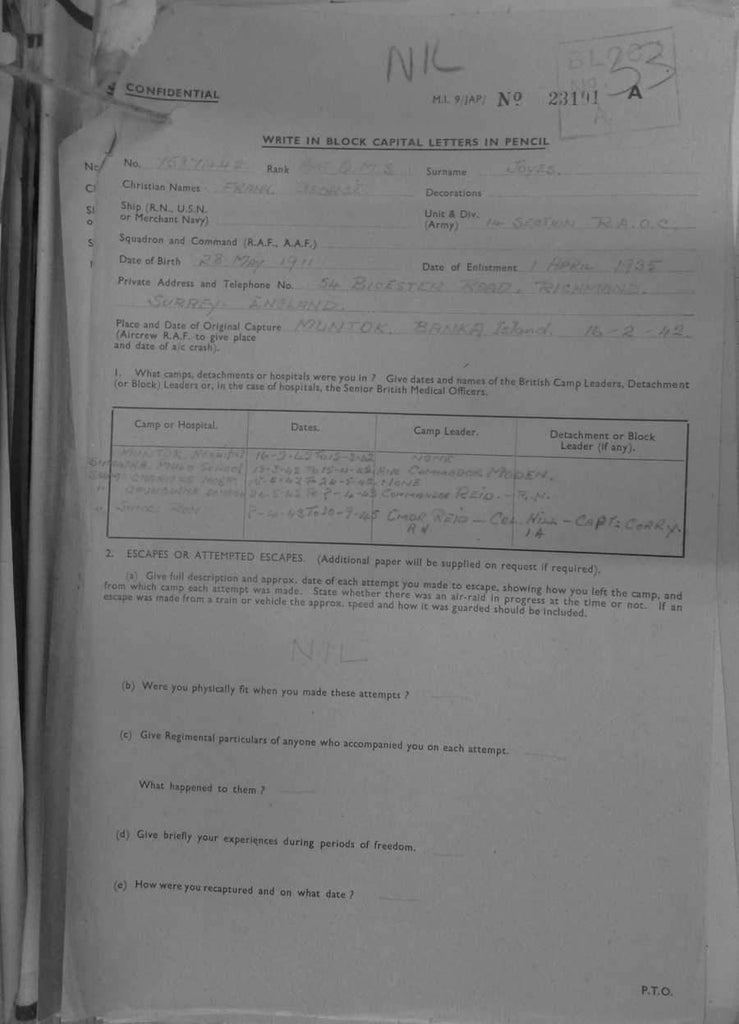 NIL
CONFIDENTIAL
M.I. 9/JAP/ No 23191 A
WRITE IN BLOCK CAPITAL LETTERS IN PENCIL
No. Rank Q.M.S Surname JOYES.
Christian Names FRANK GEORGE Decorations
Ship (R.N., U.S.N. or Merchant Navy) Unit & Div. (Army) 14 SECTION R.A.O.C.
Squadron and Command (R.A.F., A.A.F.)
Date of Birth 28 MAY 1911 Date of Enlistment 1 APRIL 1935
Private Address and Telephone No. 54 BICESTER ROAD. RICHMOND.
SURREY. ENGLAND.
Place and Date of Original Capture MUNTOK. BANKA Island. 16-2-42.
(Aircrew R.A.F. to give place
and date of a/c crash).
1. What camps, detachments or hospitals were you in ? Give dates and names of the British Camp Leaders, Detachment
(or Block) Leaders or, in the case of hospitals, the Senior British Medical Officers.
Camp or Hospital. Dates. Camp Leader. Detachment or Block
Leader (if any).
MUNTOK. HOSPITAL NONE
MULO SCHOOL COMMANDOR MODEN.
NONE
8-4-43 COMMANDOR REID. - R.N.
8-4-43 TO 20-9-45 CMDR REID - COL HILL - CAPT: CORRY.
RN IA
2. ESCAPES OR ATTEMPTED ESCAPES. (Additional paper will be supplied on request if required).
(a) Give full description and approx. date of each attempt you made to escape, showing how you left the camp, and
from which camp each attempt was made. State whether there was an air-raid in progress at the time or not. If an
escape was made from a train or vehicle the approx. speed and how it was guarded should be included.
NIL
(b) Were you physically fit when you made these attempts ?
(c) Give Regimental particulars of anyone who accompanied you on each attempt.
What happened to them ?
(d) Give briefly your experiences during periods of freedom.
(e) How were you recaptured and on what date ?
P.T.O.